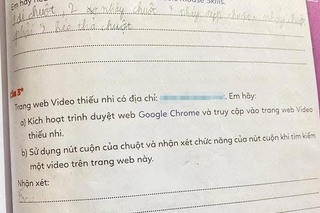 Em hãy
Mouse Skills.
chuột 2 nháy chuột 3 nháy
phải 5 kéo thả chuột
Trang web Video thiếu nhi có địa chỉ: . Em hãy:
a) Kích hoạt trình duyệt web Google Chrome và truy cập vào trang web Video
thiếu nhi.
b) Sử dụng nút cuộn của chuột và nhận xét chức năng của nút cuộn khi tìm kiếm
một video trên trang web này.
Nhận xét: